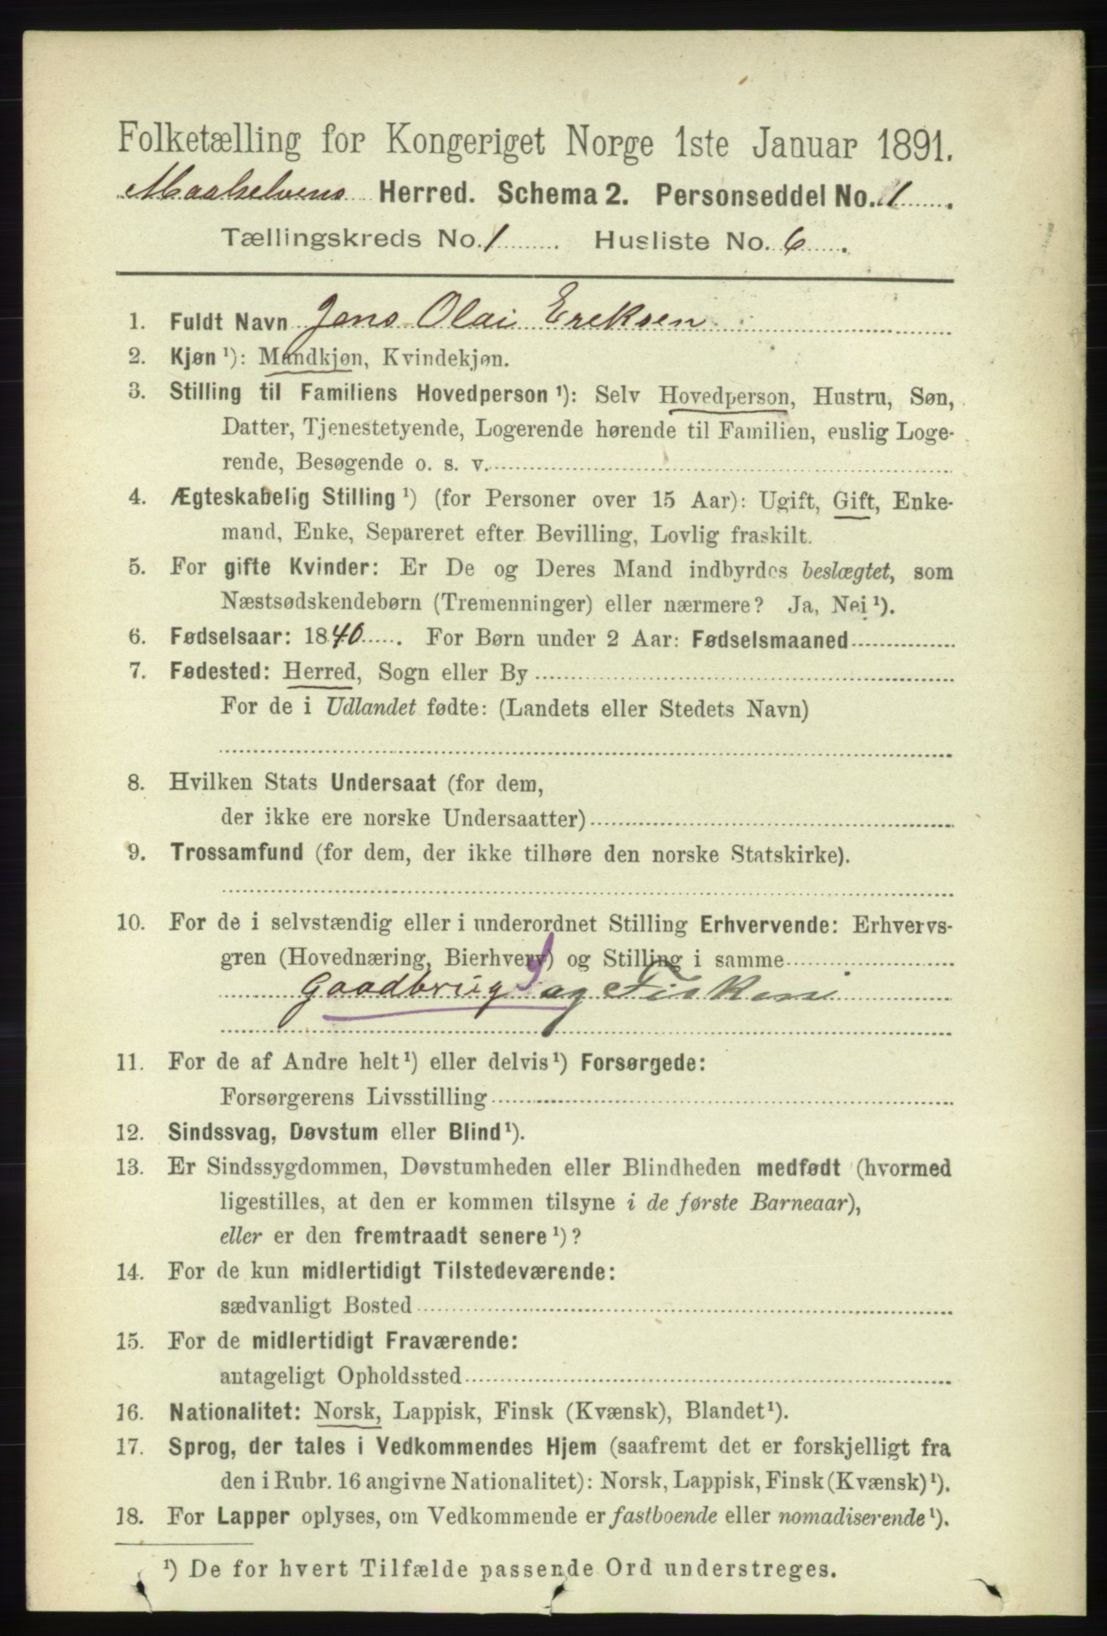 Folketælling for Kongeriget Norge 1ste Januar 1891.
Maalselvens Herred. Schema 2. Personseddel No. 1.
Tællingskreds No. 1. Husliste No. 6.
1. Fuldt Navn Jens Olai Ereksen
2. Kjøn ¹): Mandkjøn, Kvindekjøn.
3. Stilling til Familiens Hovedperson ¹): Selv Hovedperson, Hustru, Søn,
Datter, Tjenestetyende, Logerende hørende til Familien, enslig Loge-
rende, Besøgende o. s. v.
4. Ægteskabelig Stilling ¹) (for Personer over 15 Aar): Ugift, Gift, Enke-
mand, Enke, Separeret efter Bevilling, Lovlig fraskilt.
5. For gifte Kvinder: Er De og Deres Mand indbyrdes beslægtet, som
Næstsødskendebørn (Tremenninger) eller nærmere? Ja, Nei ¹).
6. Fødselsaar: 1840. For Børn under 2 Aar: Fødselsmaaned
7. Fødested: Herred, Sogn eller By
For de i Udlandet fødte: (Landets eller Stedets Navn)
8. Hvilken Stats Undersaat (for dem,
der ikke ere norske Undersaatter)
9. Trossamfund (for dem, der ikke tilhøre den norske Statskirke).
10. For de i selvstændig eller i underordnet Stilling Erhvervende: Erhvervs-
gren (Hovednæring, Bierhverv) og Stilling i samme
Gaadbrug S og Fiskeri
11. For de af Andre helt ¹) eller delvis ¹) Forsørgede:
Forsørgerens Livsstilling
12. Sindssvag, Døvstum eller Blind ¹).
13. Er Sindssygdommen, Døvstumheden eller Blindheden medfødt (hvormed
ligestilles, at den er kommen tilsyne i de første Barneaar),
eller er den fremtraadt senere ¹)?
14. For de kun midlertidigt Tilstedeværende:
sædvanligt Bosted
15. For de midlertidigt Fraværende:
antageligt Opholdssted
16. Nationalitet: Norsk, Lappisk, Finsk (Kvænsk), Blandet ¹).
17. Sprog, der tales i Vedkommendes Hjem (saafremt det er forskjelligt fra
den i Rubr. 16 angivne Nationalitet): Norsk, Lappisk, Finsk (Kvænsk) ¹).
18. For Lapper oplyses, om Vedkommende er fastboende eller nomadiserende ¹).
¹) De for hvert Tilfælde passende Ord understreges.